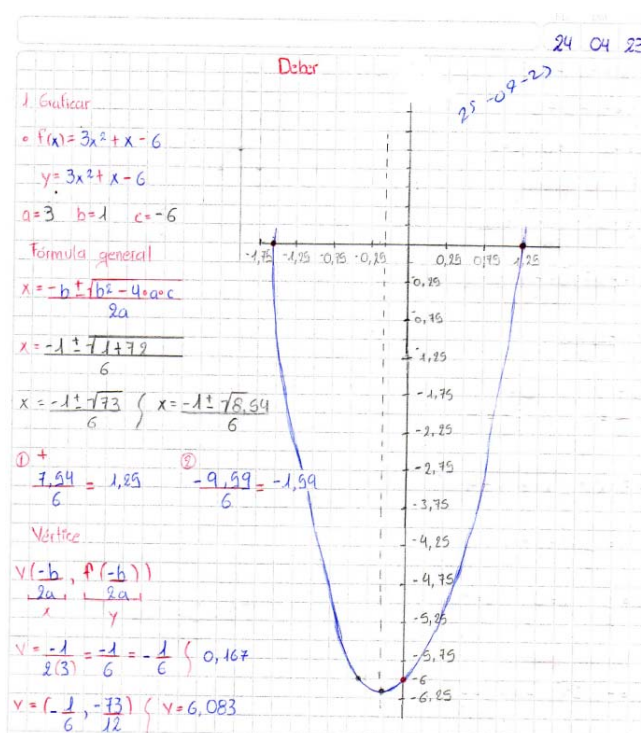 24 04 23
Deber
25-04-23
1. Graficar
• f(x) = 3x² + x - 6
y = 3x² + x - 6
a = 3 b = 1 c = -6
Fórmula general
x = -b ± √(b² - 4•a•c) / 2a
x = -1 ± √(1 + 72) / 6
x = -1 ± √73 / 6 { x = -1 ± √8,54 / 6
① + ②
7,54 / 6 = 1,25 -9,59 / 6 = -1,59
Vértice
V(-b / 2a, f(-b / 2a))
x y
V = -1 / 2(3) = -1 / 6 = - 1 / 6 { 0,167
V = (- 1 / 6, -73 / 12) { V = 6,083
-1,75 -1,25 -0,75 -0,25 0,25 0,75 1,25
-0,25
-0,75
-1,25
-1,75
-2,25
-2,75
-3,75
-4,25
-4,75
-5,25
-5,75
-6
-6,25